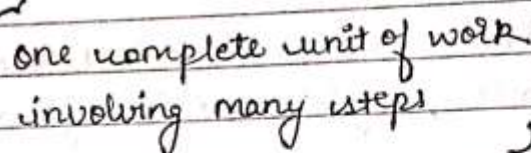 one complete unit of work
involving many steps